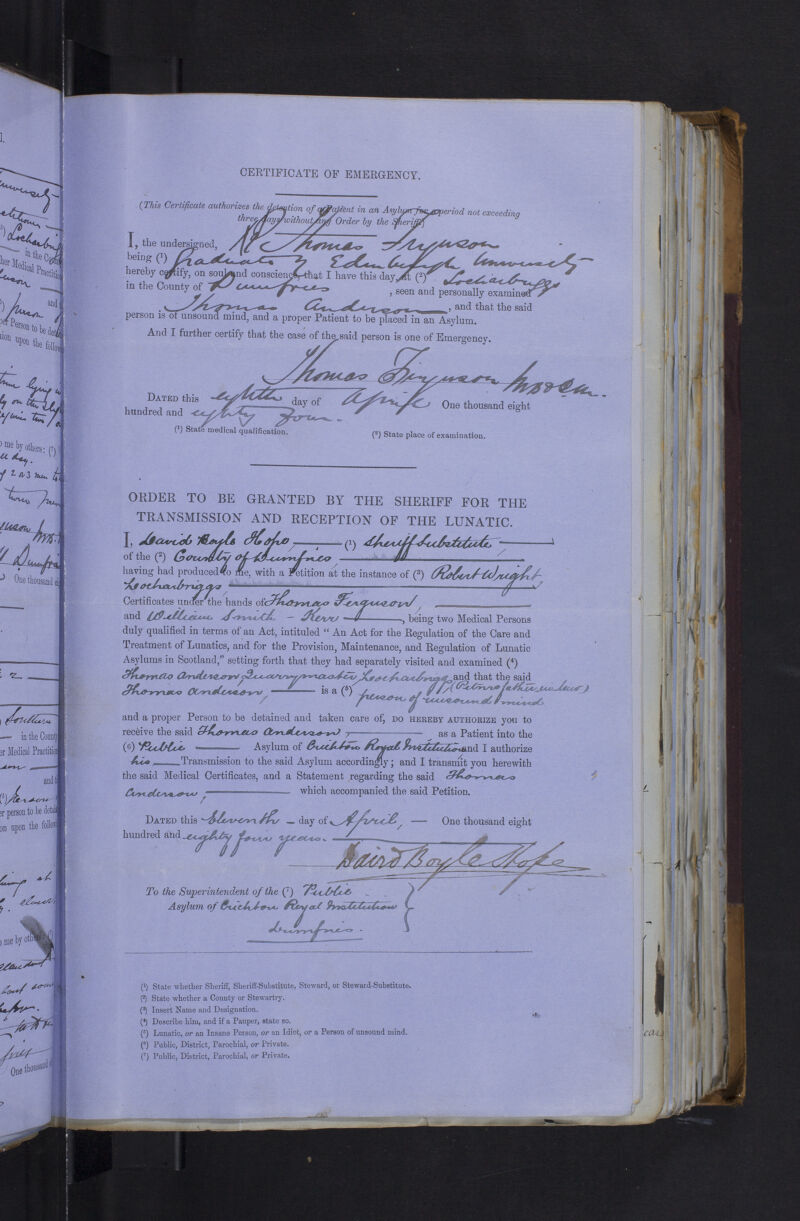 CERTIFICATE OF EMERGENCY.
(This Certificate authorizes the detention of a Patient in an Asylum for a period not exceeding
three days without any Order by the Sheriff)
I, the undersigned, Thomas Ferguson
being (¹) Graduate of Edinburgh University
hereby certify, on soul and conscience, that I have this day, at (²) Locharbriggs
in the County of Dumfries, seen and personally examined
Thomas Anderson, and that the said
person is of unsound mind, and a proper Patient to be placed in an Asylum.
And I further certify that the case of the said person is one of Emergency.
Thomas Ferguson MB & CM.
DATED this eighth day of April One thousand eight
hundred and eighty four.
(¹) State medical qualification. (²) State place of examination.
ORDER TO BE GRANTED BY THE SHERIFF FOR THE
TRANSMISSION AND RECEPTION OF THE LUNATIC.
I, David Boyle Hope, (¹) Sheriff Substitute,
of the (²) County of Dumfries
having had produced to me, with a Petition at the instance of (³) Robert Wright,
Locharbriggs
Certificates under the hands of Thomas Ferguson,
and William Smith - Kerr, being two Medical Persons
duly qualified in terms of an Act, intituled "An Act for the Regulation of the Care and
Treatment of Lunatics, and for the Provision, Maintenance, and Regulation of Lunatic
Asylums in Scotland," setting forth that they had separately visited and examined (⁴)
Thomas Anderson, Quarrymaster, Locharbriggs and that the said
(father in law)
Thomas Anderson, is a (⁵) person of unsound mind
and a proper Person to be detained and taken care of, DO HEREBY AUTHORIZE you to
receive the said Thomas Anderson, as a Patient into the
(⁶) Public Asylum of Crichton Royal Institution and I authorize
his Transmission to the said Asylum accordingly; and I transmit you herewith
the said Medical Certificates, and a Statement regarding the said Thomas
Anderson, which accompanied the said Petition.
DATED this Eleventh day of April, One thousand eight
hundred and eighty four years.
David Boyle Hope
To the Superintendent of the (⁷) Public
Asylum of Crichton Royal Institution
Dumfries.
(¹) State whether Sheriff, Sheriff-Substitute, Steward, or Steward-Substitute.
(²) State whether a County or Stewartry.
(³) Insert Name and Designation.
(⁴) Describe him, and if a Pauper, state so.
(⁵) Lunatic, or an Insane Person, or an Idiot, or a Person of unsound mind.
(⁶) Public, District, Parochial, or Private.
(⁷) Public, District, Parochial, or Private.